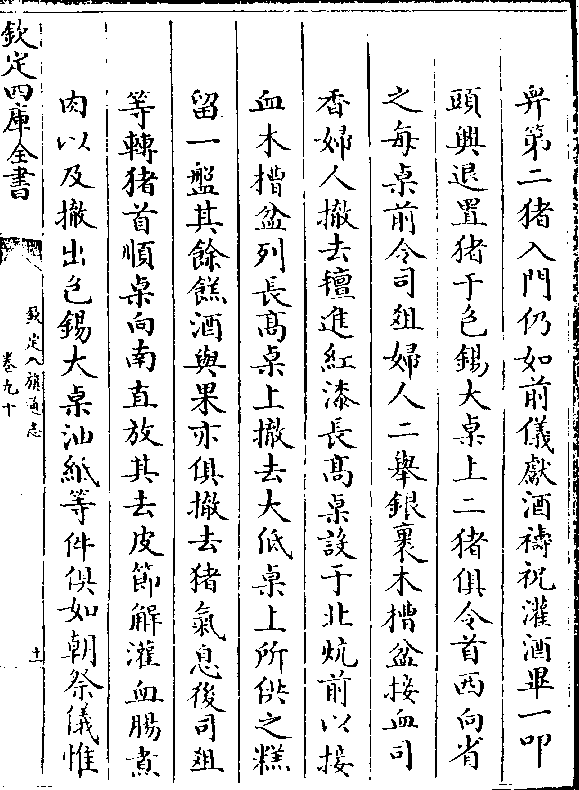 舁第二猪入門仍如前儀獻酒禱祝灌酒畢一叩
頭興退置猪于包錫大桌上二猪俱令首西向省
之每桌前令司俎婦人二舉銀裹木槽盆接血司
香婦人撤去氊進紅漆長高桌設于北炕前以接
血木槽盆列長高桌上撤去大低桌上所供之糕
留一盤其餘餻酒與果亦俱撤去猪氣息後司俎
等轉猪首順桌向南直放其去皮節解灌血腸煮
肉以及撤出包錫大桌油紙等件俱如朝祭儀惟
欽定四庫全書
欽定八旗通志
卷九十
十一